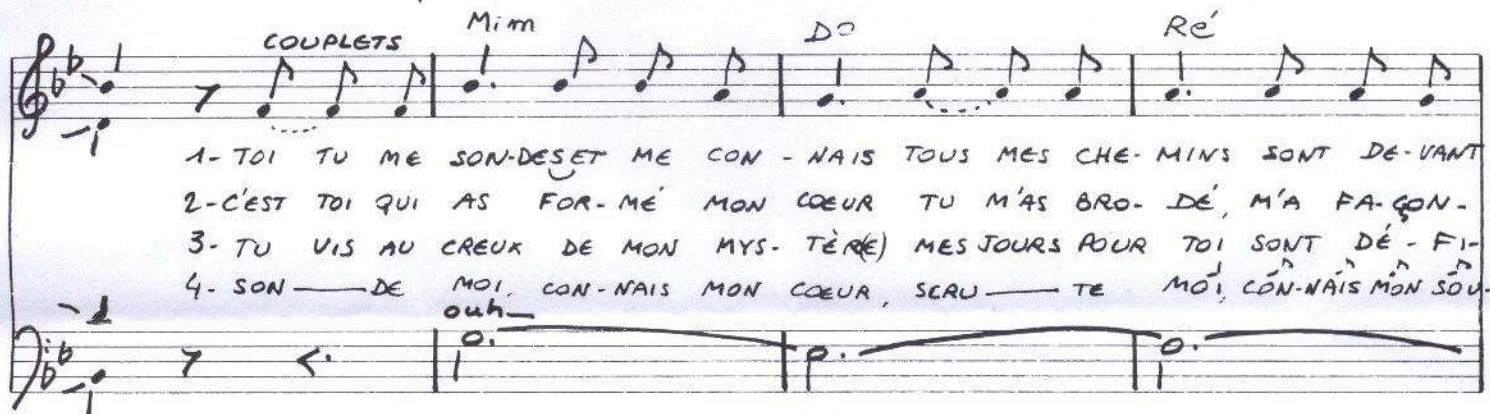 Mim DO Ré
COUPLETS
1- TOI TU ME SON-DES ET ME CON - NAIS TOUS MES CHE- MINS SONT DE-VANT
2- C'EST TOI QUI AS FOR-MÉ MON COEUR TU M'AS BRO- DÉ, M'A FA-ÇON-
3- TU VIS AU CREUX DE MON MYS- TÈR(E) MES JOURS POUR TOI SONT DÉ-FI-
4- SON — DE MOI, CON-NAIS MON COEUR, SCRU — TE MOI, CON-NAIS MON SOU-
ouh_